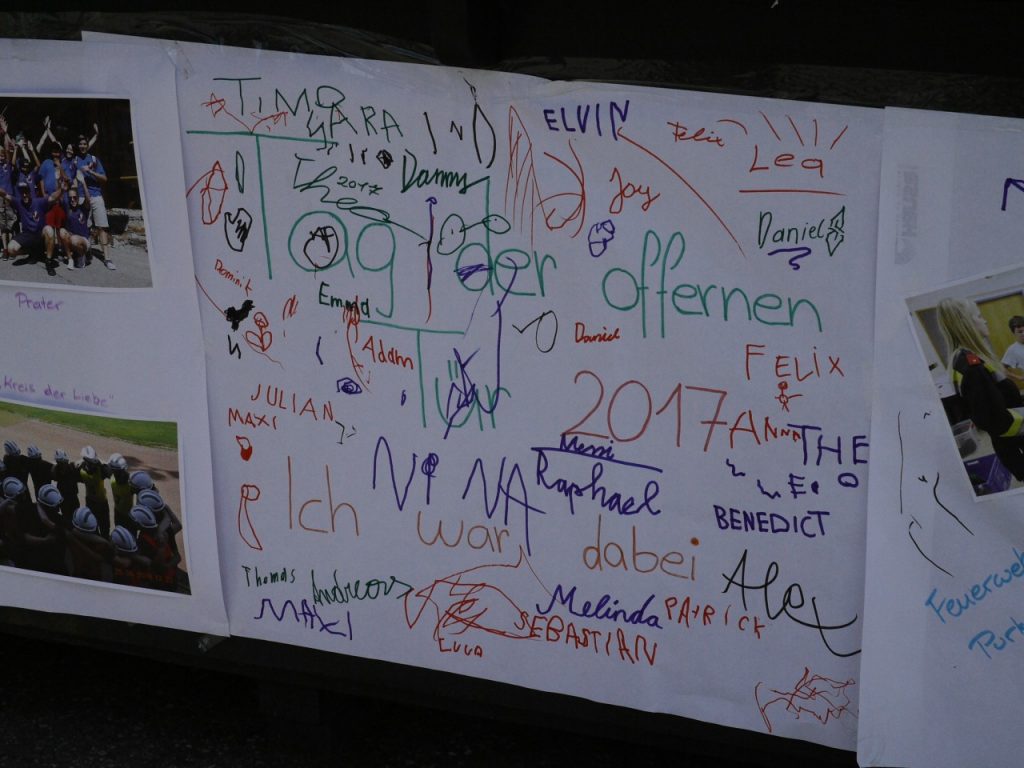 TIMO
SARA
ELVIN
Felix
Lea
Theo
2017
Danny
Joy
Daniel
Tag der offernen
Tür
2017
Prater
Dominik
Emma
Adam
Daniel
FELIX
"Kreis der Liebe"
JULIAN
MAXI
ANNA
THEO
Messi
NINA
Raphael
BENEDICT
Ich war dabei
Alex
Thomas
Andreas
MAXI
Melinda
PATRICK
SEBASTIAN
Luca